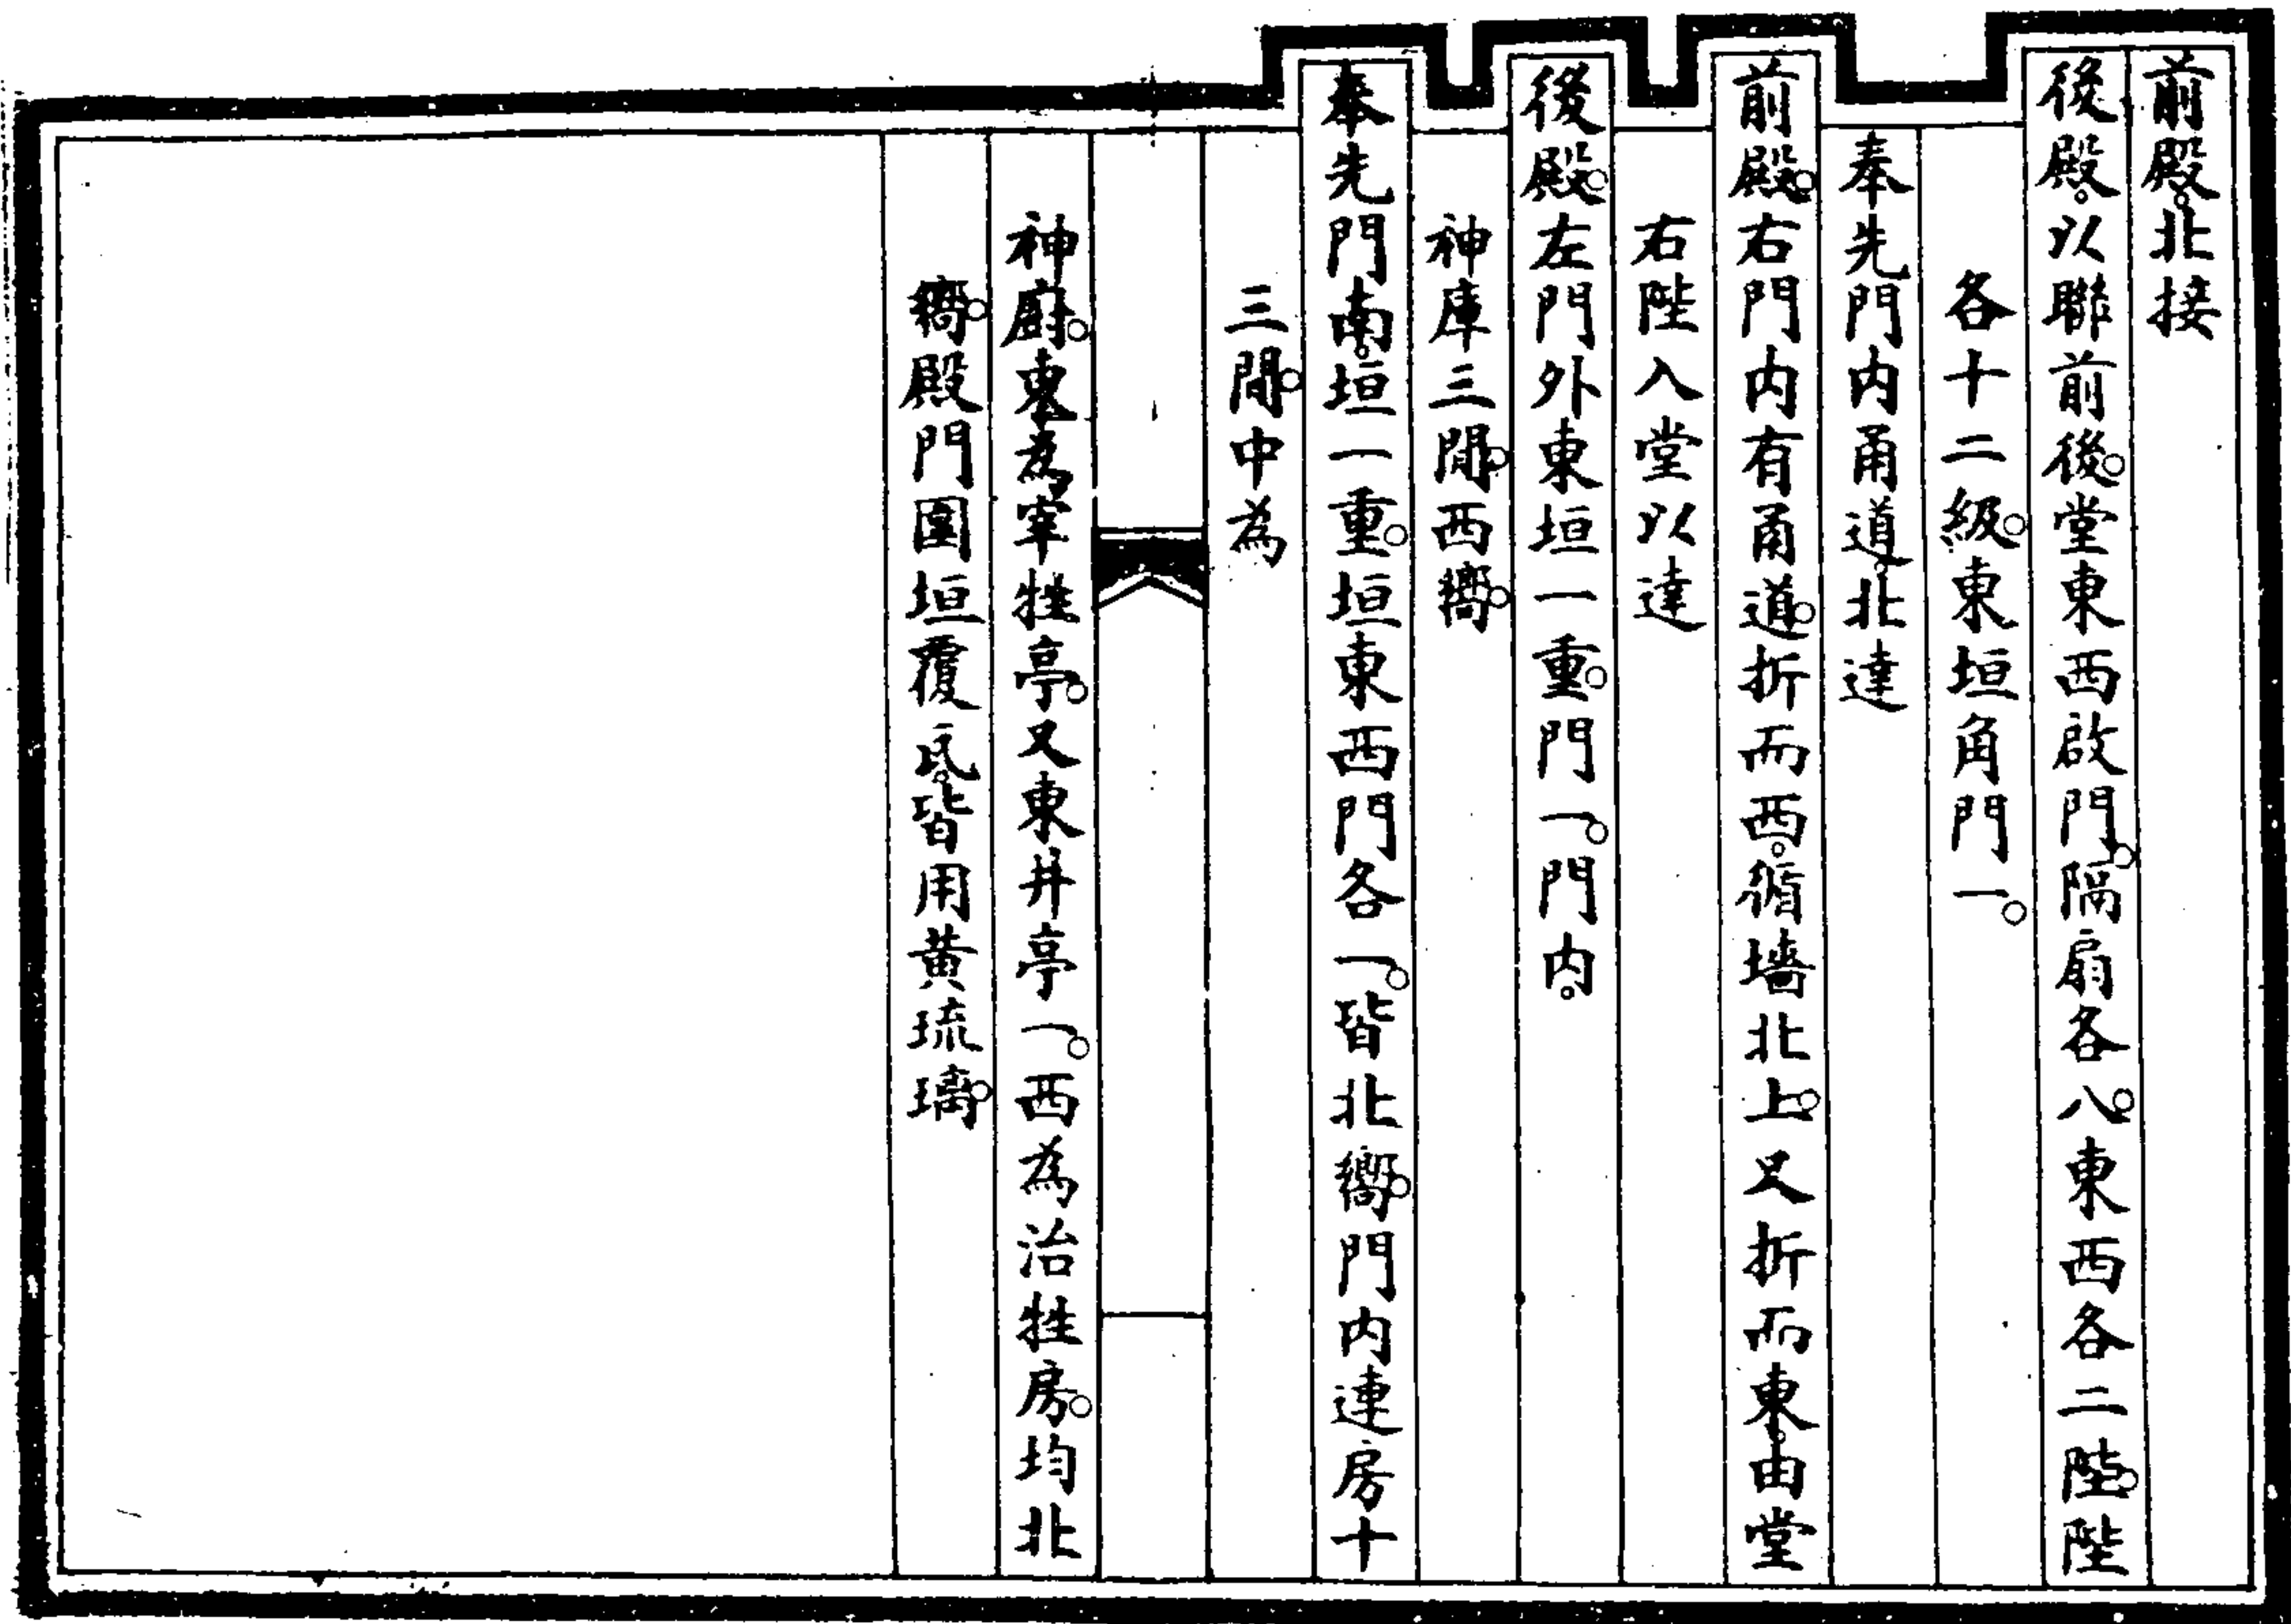 前殿。北接
後殿。以聯前後。堂東西啟門。隔扇各八。東西各二陛。陛
各十二級。東垣角門一。
奉先門内甬道。北達
前殿。右門内有甬道。折而西。循墻北上。又折而東。由堂
右陛入堂以達
後殿。左門外東垣一重。門一。門内。
神庫三間。西嚮。
奉先門南。垣一重。垣東西門各一。皆北嚮。門内連房十
三間。中為
神廚。東為宰牲亭。又東井亭一。西為治牲房。均北
嚮。殿門圍垣覆瓦。皆用黃琉璃。